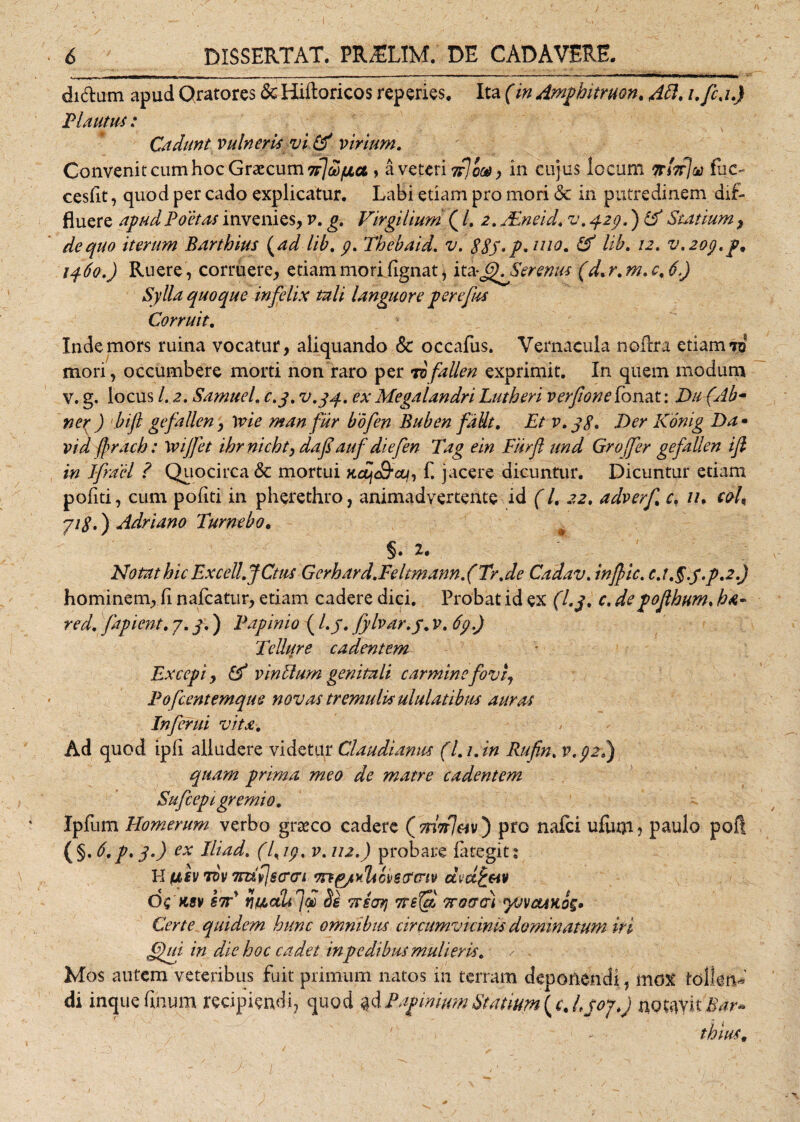 6 DISSERTAT. PRÆLIM. DE CADAVERE.
dictum apud Oratores & Historicos reperies. Ita (in Amphitruon. Act. 1. sc. 1.)
Plautus:
Cadunt vulneris vi & virium.
Convenit cum hoc Græcum πλῶμα, à veteri πλόω, in cujus locum πίπλω suc-
cessit, quod per cado explicatur. Labi etiam pro mori & in putredinem dif-
fluere apud Poëtas invenies, v. g. Virgilium (l. 2. Æneid. v. 429.) & Statium,
de quo iterum Barthius (ad lib. 9. Thebaid. v. 885. p. 1110. & lib. 12. v. 209. p.
1460.) Ruere, corruere, etiam mori signat, ita Q. Serenus (d. r. m. c. 6.)
Sylla quoque infelix tali languore peresus
Corruit.
Inde mors ruina vocatur, aliquando & occasus. Vernacula nostra etiam τὸ
mori, occumbere morti non raro per τὸ fallen exprimit. In quem modum
v. g. locus l. 2. Samuel. c. 3. v. 34. ex Megalandri Lutheri versione sonat: Du (Ab-
ner) bist gefallen, wie man für bösen Buben fällt. Et v. 38. Der König Da-
vid sprach: wisset ihr nicht, daß auf diesen Tag ein Fürst und Grosser gefallen ist
in Israël? Quocirca & mortui κεῖσθαι, s. jacere dicuntur. Dicuntur etiam
positi, cum positi in pherethro, animadvertente id (l. 22. advers. c. 11. col.
718.) Adriano Turnebo.
§. 2.
Notat hic Excell. JCtus Gerhard. Feltmann. (Tr. de Cadav. inspic. c. 1. §. 5. p. 2.)
hominem, si nascatur, etiam cadere dici. Probat id ex (l. 3. c. de posthum. hæ-
red. sapient. 7. 3.) Papinio (l. 5. sylvar. 5. v. 69.)
Tellure cadentem
Excepi, & vinctum genitali carmine fovi,
Poscentemque novas tremulis ululatibus auras
Inserui vitæ.
Ad quod ipsi alludere videtur Claudianus (l. 1. in Rufin. v. 92.)
quam prima meo de matre cadentem
Suscepi gremio.
Ipsum Homerum verbo græco cadere (πίπλειν) pro nasci usum, paulo post
(§. 6. p. 3.) ex Iliad. (l. 19. v. 112.) probare sategit:
Η μὲν τὸν πάντεσσι περικτιόνεσσιν ἀνάξειν
Ὅς κεν ἐπ' ἤματι τῷ δε πέσῃ μετὰ ποσσὶ γυναικός.
Certe quidem hunc omnibus circumvicinis dominatum iri
Qui in die hoc cadet in pedibus mulieris.
Mos autem veteribus fuit primum natos in terram deponendi, mox tollen-
di inque sinum recipiendi, quod ad Papinium Statium (c. l. 507.) notavit Bar-
thius.